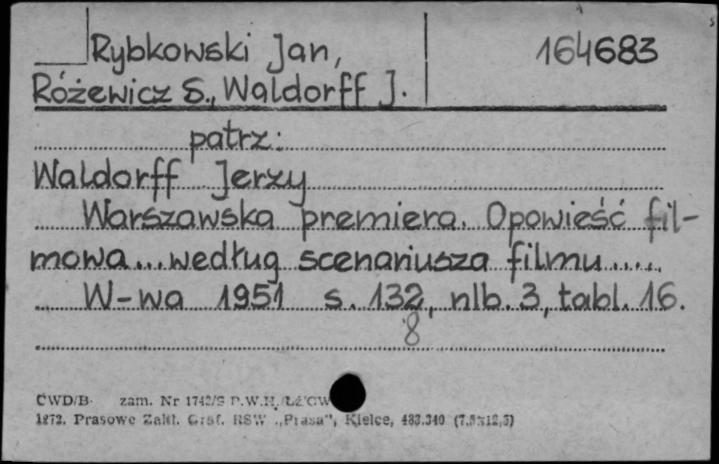 Rybkowski Jan, 164683
Różewicz S., Waldorff J.
patrz:
Waldorff Jerzy
Warszawska premiera. Opowieść fil-
mowa... według scenariusza filmu.....
W-wa 1951 s. 132, nlb. 3, tabl. 16.
8
CWD/B- zam. Nr
1272. Prasowe Zakł. Graf. RSW „Prasa", Kielce, 483.340 (7,5x12,5)